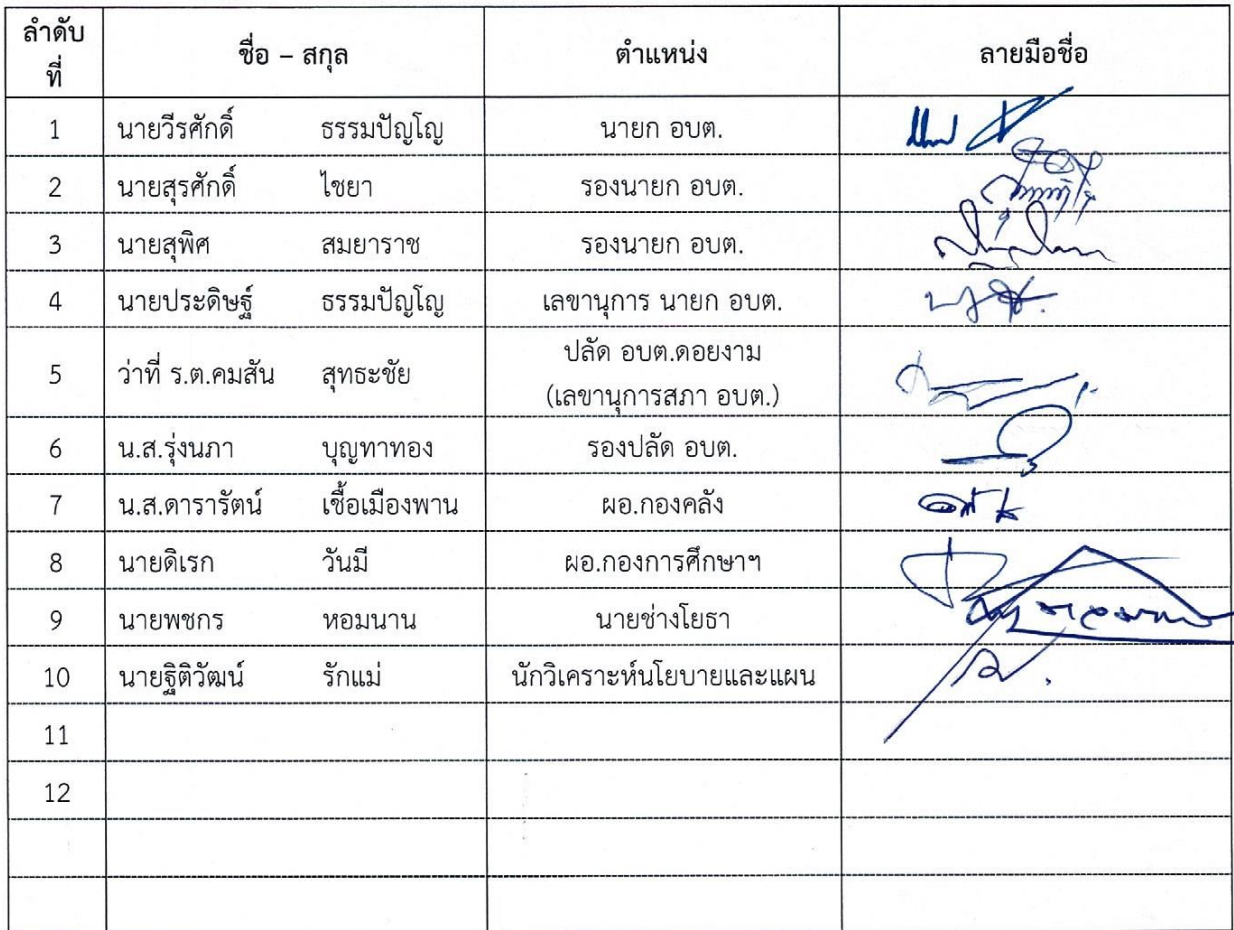 ลำดับที่ ชื่อ – สกุล ตำแหน่ง ลายมือชื่อ
1 นายวีรศักดิ์ ธรรมปัญโญ นายก อบต.
2 นายสุรศักดิ์ ไชยา รองนายก อบต.
3 นายสุพิศ สมยาราช รองนายก อบต.
4 นายประดิษฐ์ ธรรมปัญโญ เลขานุการ นายก อบต.
5 ว่าที่ ร.ต.คมสัน สุทธะชัย ปลัด อบต.ดอยงาม
(เลขานุการสภา อบต.)
6 น.ส.รุ่งนภา บุญทาทอง รองปลัด อบต.
7 น.ส.ดารารัตน์ เชื้อเมืองพาน ผอ.กองคลัง
8 นายดิเรก วันมี ผอ.กองการศึกษาฯ
9 นายพชกร หอมนาน นายช่างโยธา
10 นายฐิติวัฒน์ รักแม่ นักวิเคราะห์นโยบายและแผน
11
12